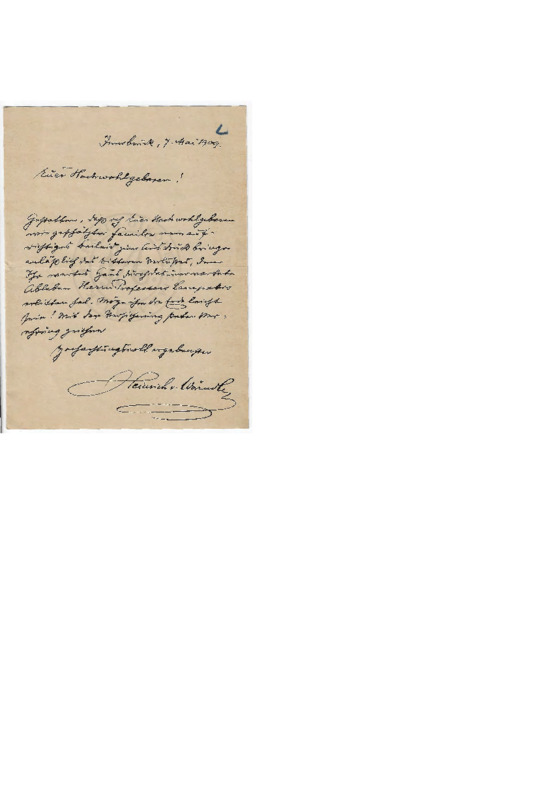 L
Innsbruck, 7. Mai 1909.
Euer Hochwohlgeboren!
Gestatten, daß ich Euer Hochwohlgeboren
geschätzter Familie mein auf-
richtiges Beileid zum Ausdruck bringe
anläßlich des bitteren Verlustes, den
Ihr wertes Haus durch das unerwartete
Ableben Herrn Professors
erlitten hat. Möge ihm die Erde leicht
sein! Mit der Versicherung steter Ver-
ehrung zeichne
hochachtungsvoll ergebenster
Heinrich v. Wörndle